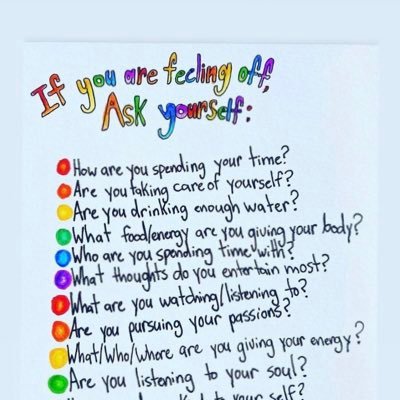 If you are feeling off,
Ask yourself:
How are you spending your time?
Are you taking care of yourself?
Are you drinking enough water?
What food/energy are you giving your body?
Who are you spending time with?
What thoughts do you entertain most?
What are you watching/listening to?
Are you pursuing your passions?
What/Who/Where are you giving your energy?
Are you listening to your soul?
to your self?